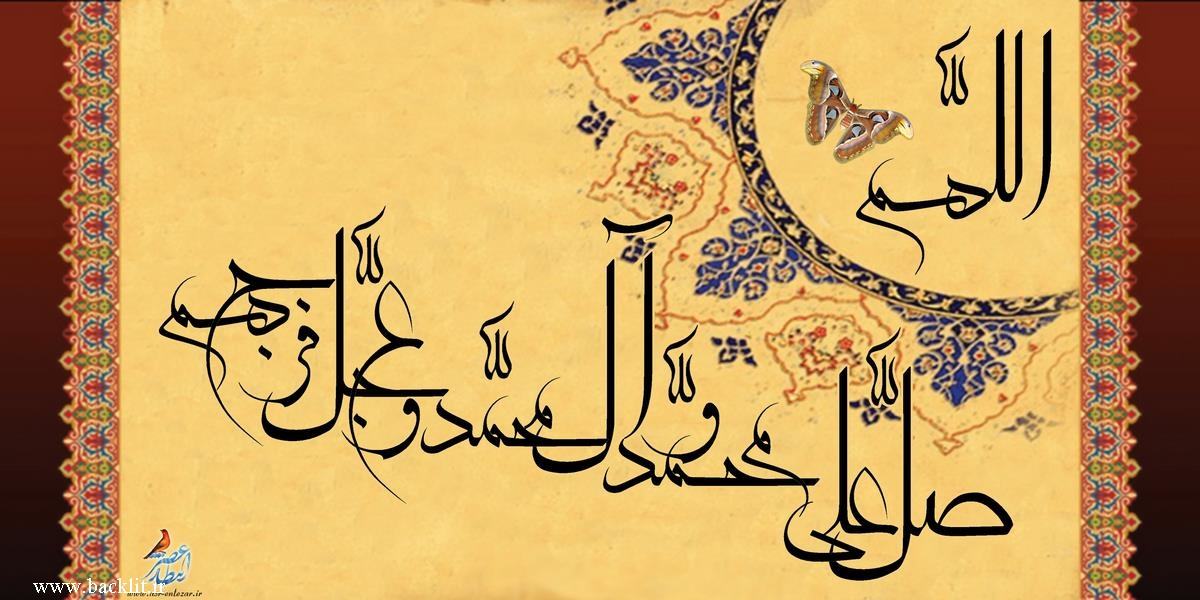 اللهم
صل علی محمد و آل محمد و عجل فرجهم
عصر انتظار
www.asr-entezar.ir
www.backlit.ir